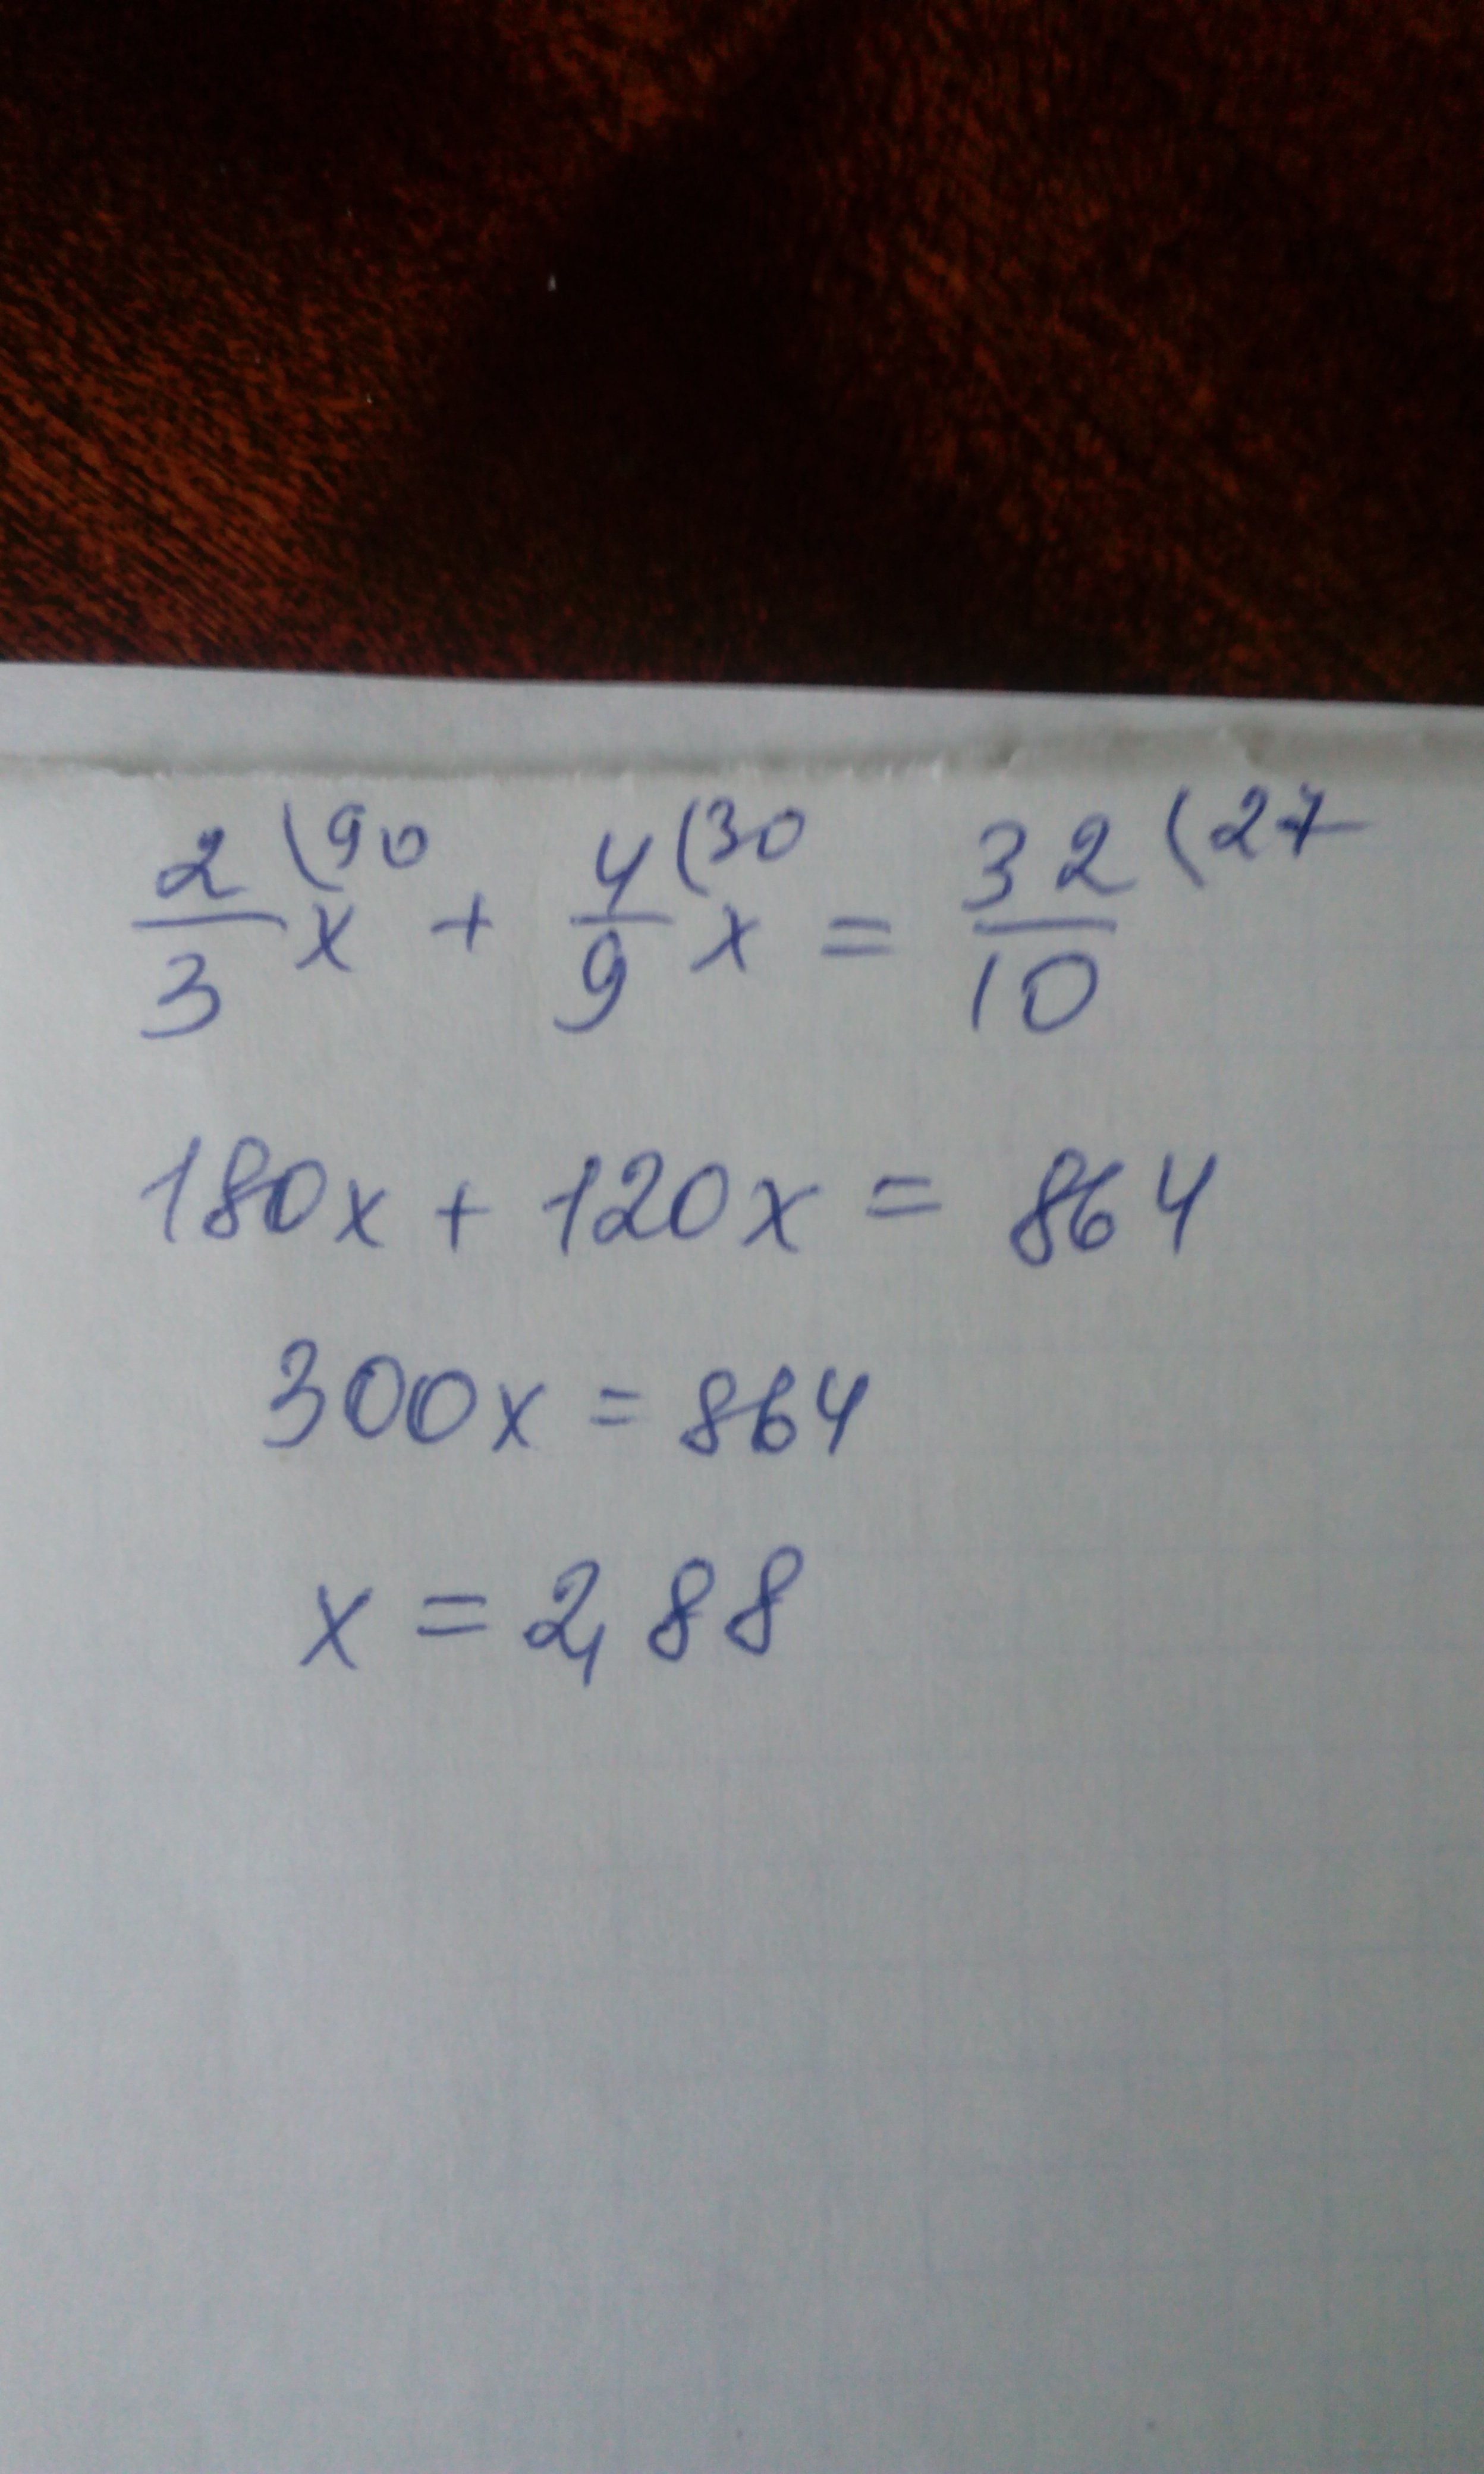 2/3 (90 x + 4/9 (30 x = 32/10 (27
180x + 120x = 864
300x = 864
x = 2,88